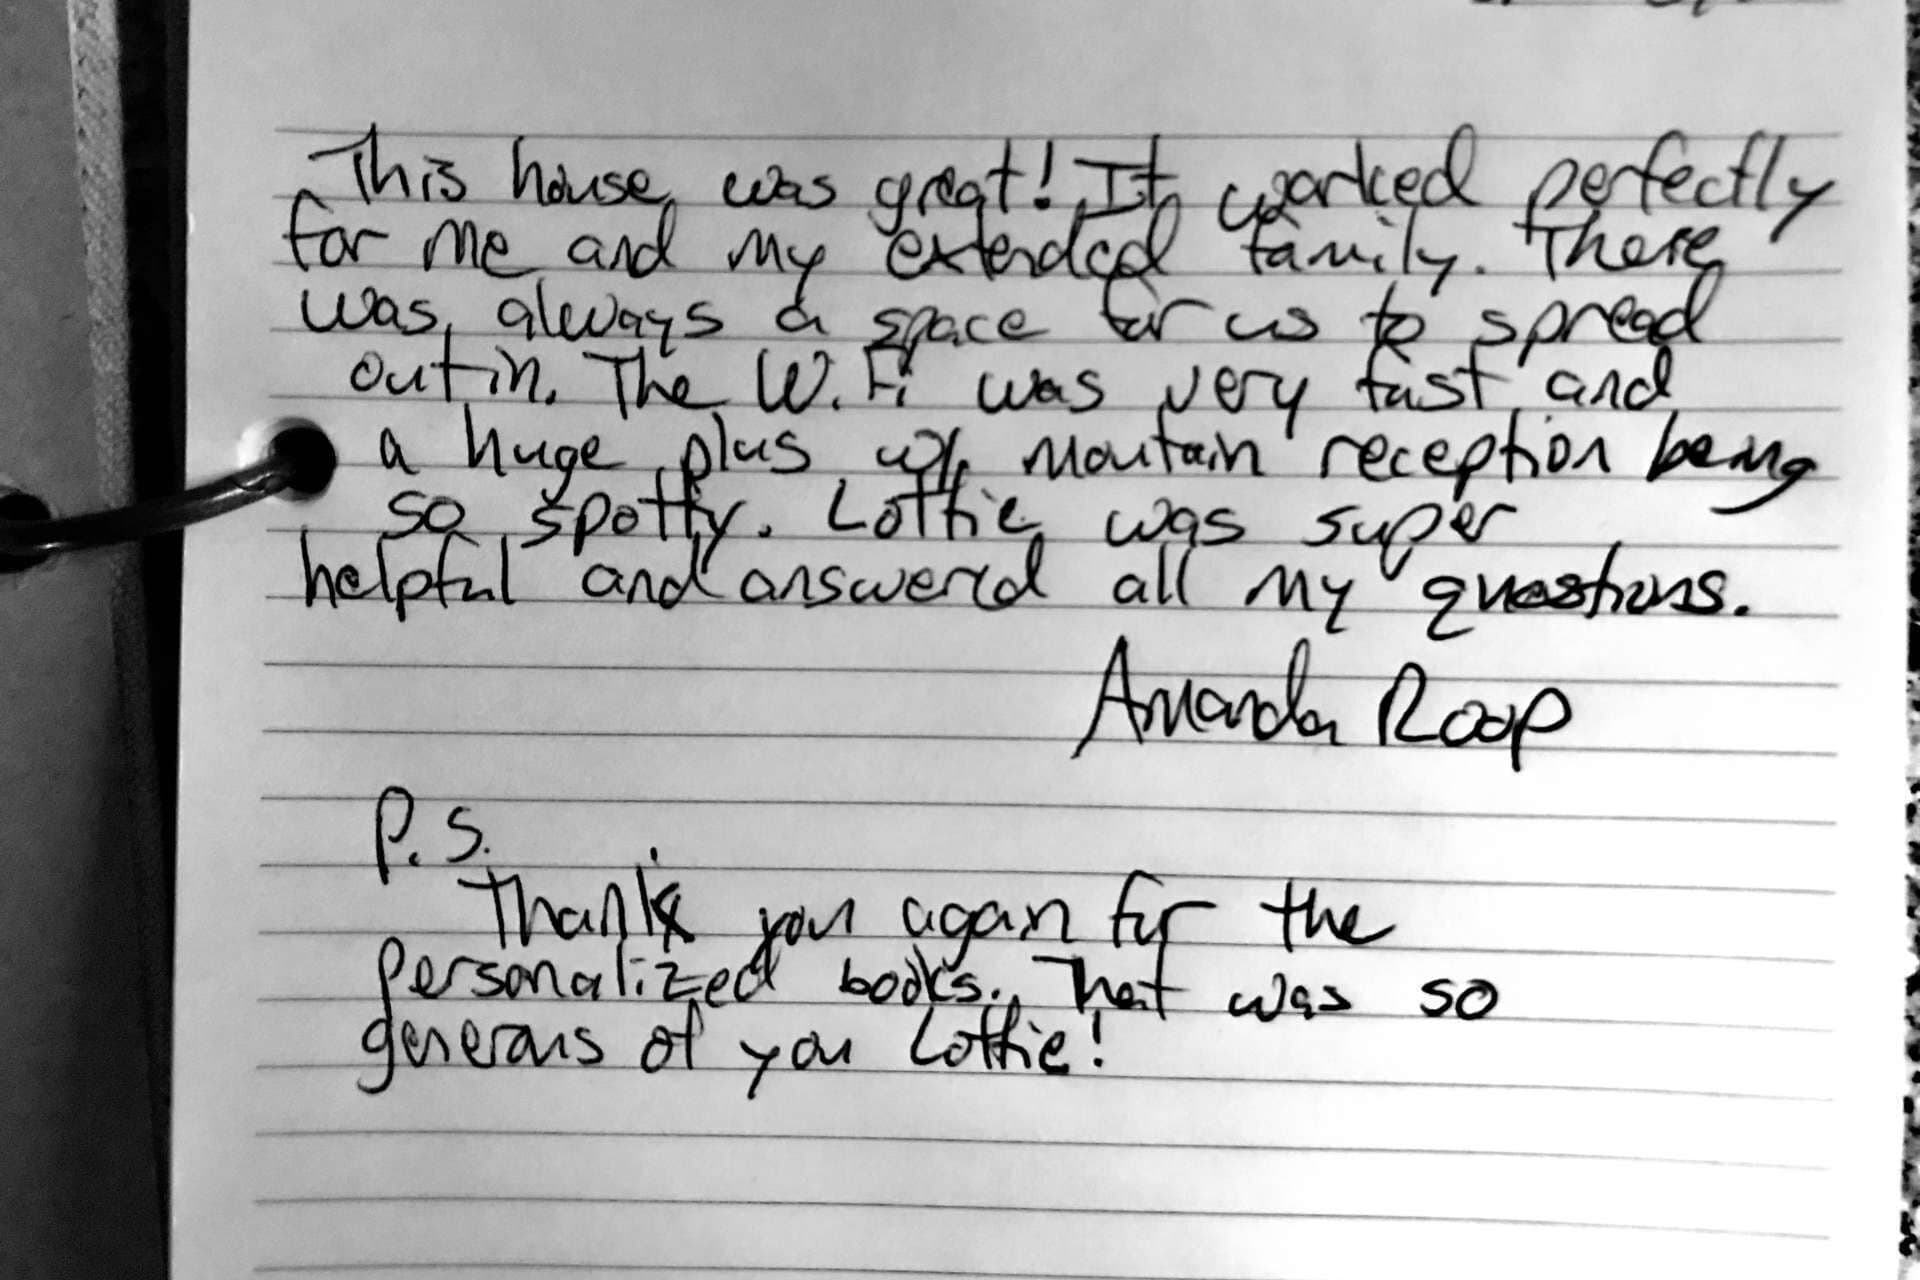 This house was great! It worked perfectly
for me and my extended family. There
was always a space for us to spread
out in. The Wi.Fi was very fast and
a huge plus w/ Moutain reception being
so spotty. Lottie was super
helpful and answered all my questions.
Amanda Roop
P.S.
Thank you again for the
personalized books. That was so
generous of you Lottie!